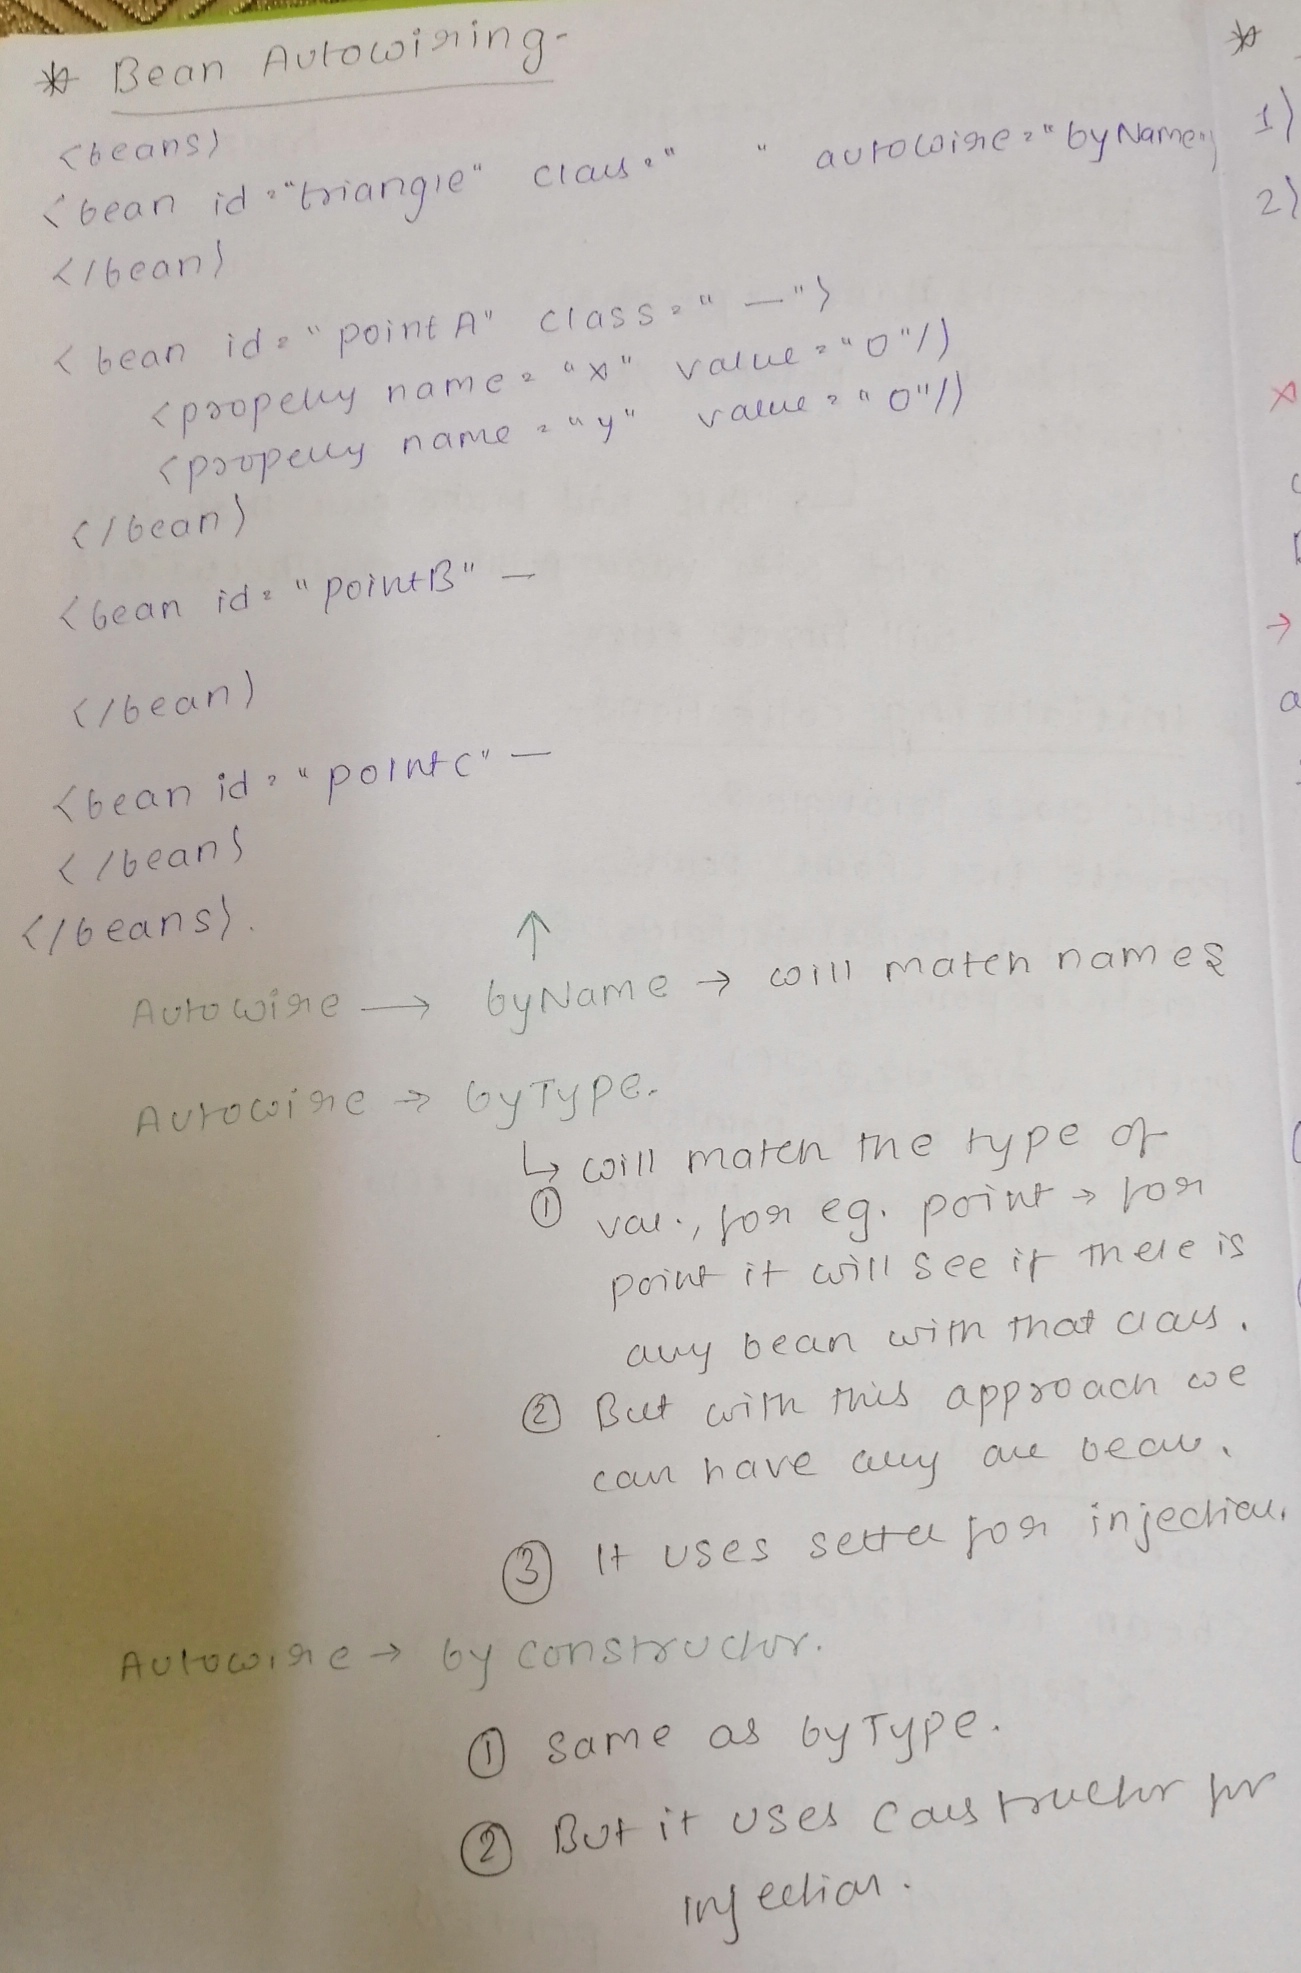 * Bean Autowiring-
<beans>
<bean id="triangle" class=" " autowire="byName">
</bean>
<bean id="pointA" class="—">
<property name="x" value="0"/>
<property name="y" value="0"/>
</bean>
<bean id="pointB" —
</bean>
<bean id="pointC" —
</bean>
</beans>.
↑
Autowire → byName → will match names
Autowire → byType.
↳ will match the type of
① var., for eg. point → for
point it will see if there is
any bean with that class.
② But with this approach we
can have any one bean.
③ It uses setter for injection.
Autowire → by constructor.
① Same as byType.
② But it uses constructor for
injection.
*
1)
2)